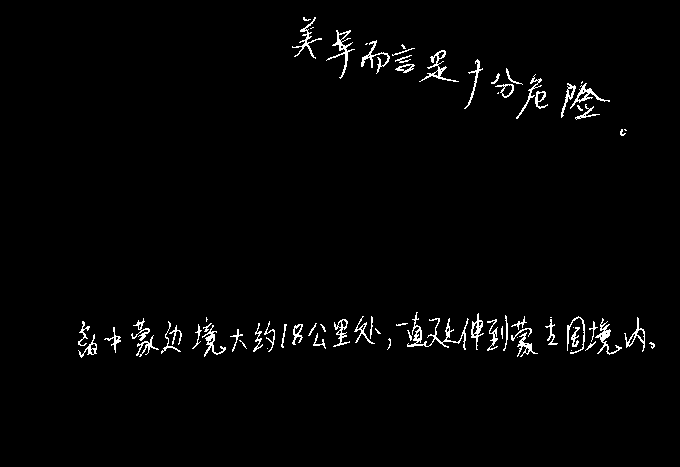 美军而言是十分危险。
离中蒙边境大约18公里处,一直延伸到蒙古国境内。